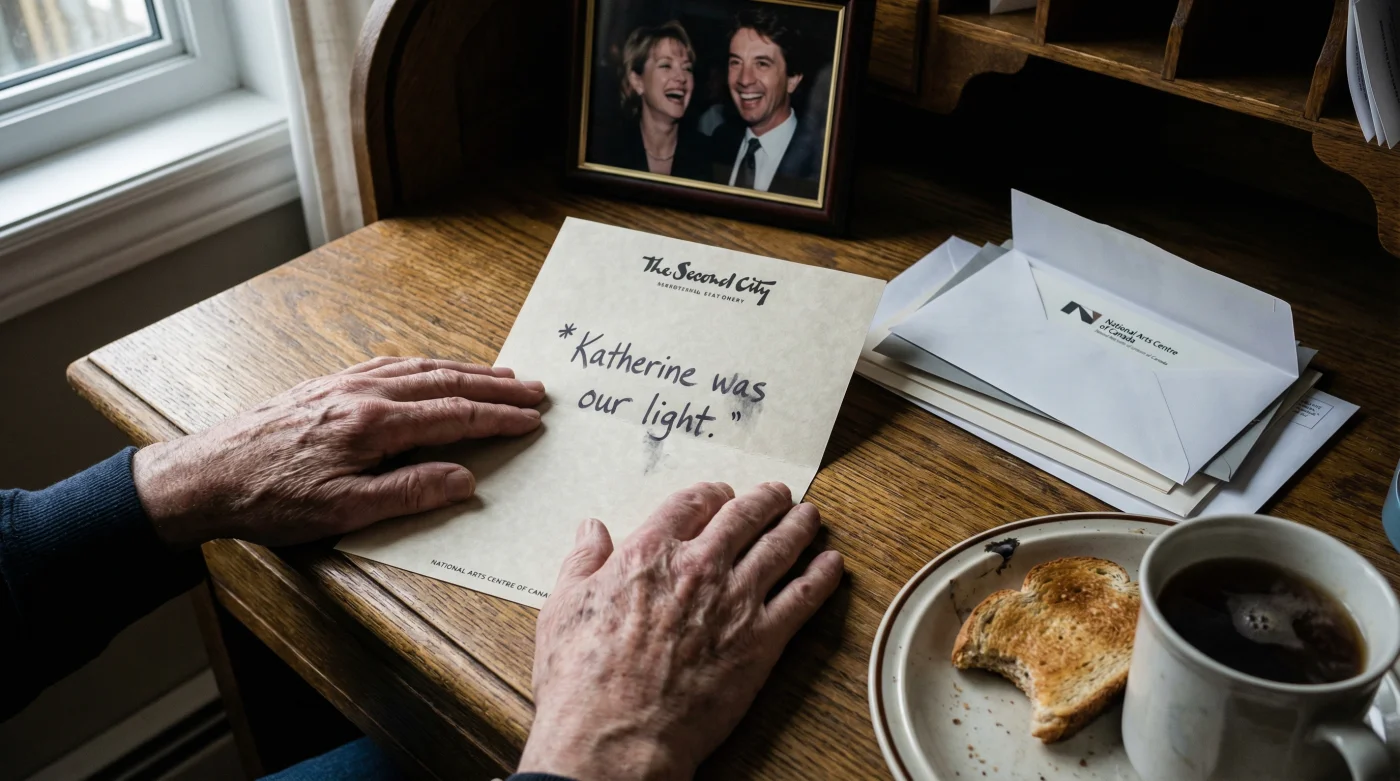 The Second City
*"Katherine was
our light."
NATIONAL ARTS CENTRE OF CANA
National Arts Centre
of Canada